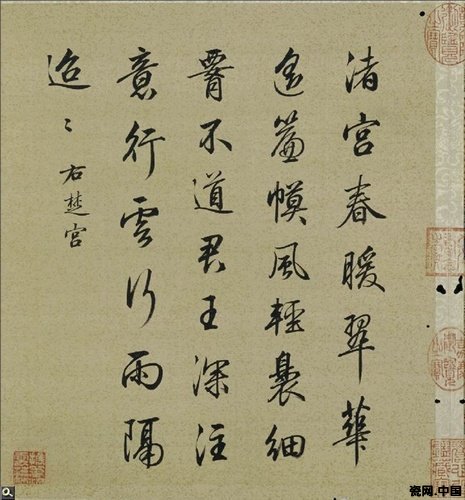 渚宮春暖翠華
遙簾幙風輕裊細
腰不道君王深注
意行雲行雨隔
迢〻
右楚宮
瓷网.中国